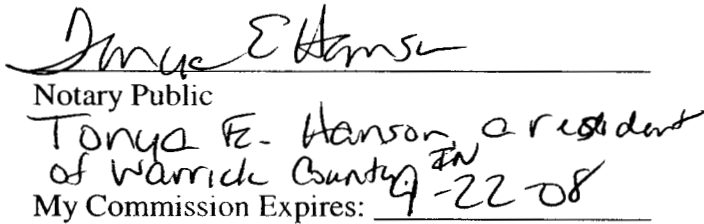 Tonya E Hanson
Notary Public
Tonya E. Hanson, a resident
of Warrick County, IN
My Commission Expires: 9-22-08